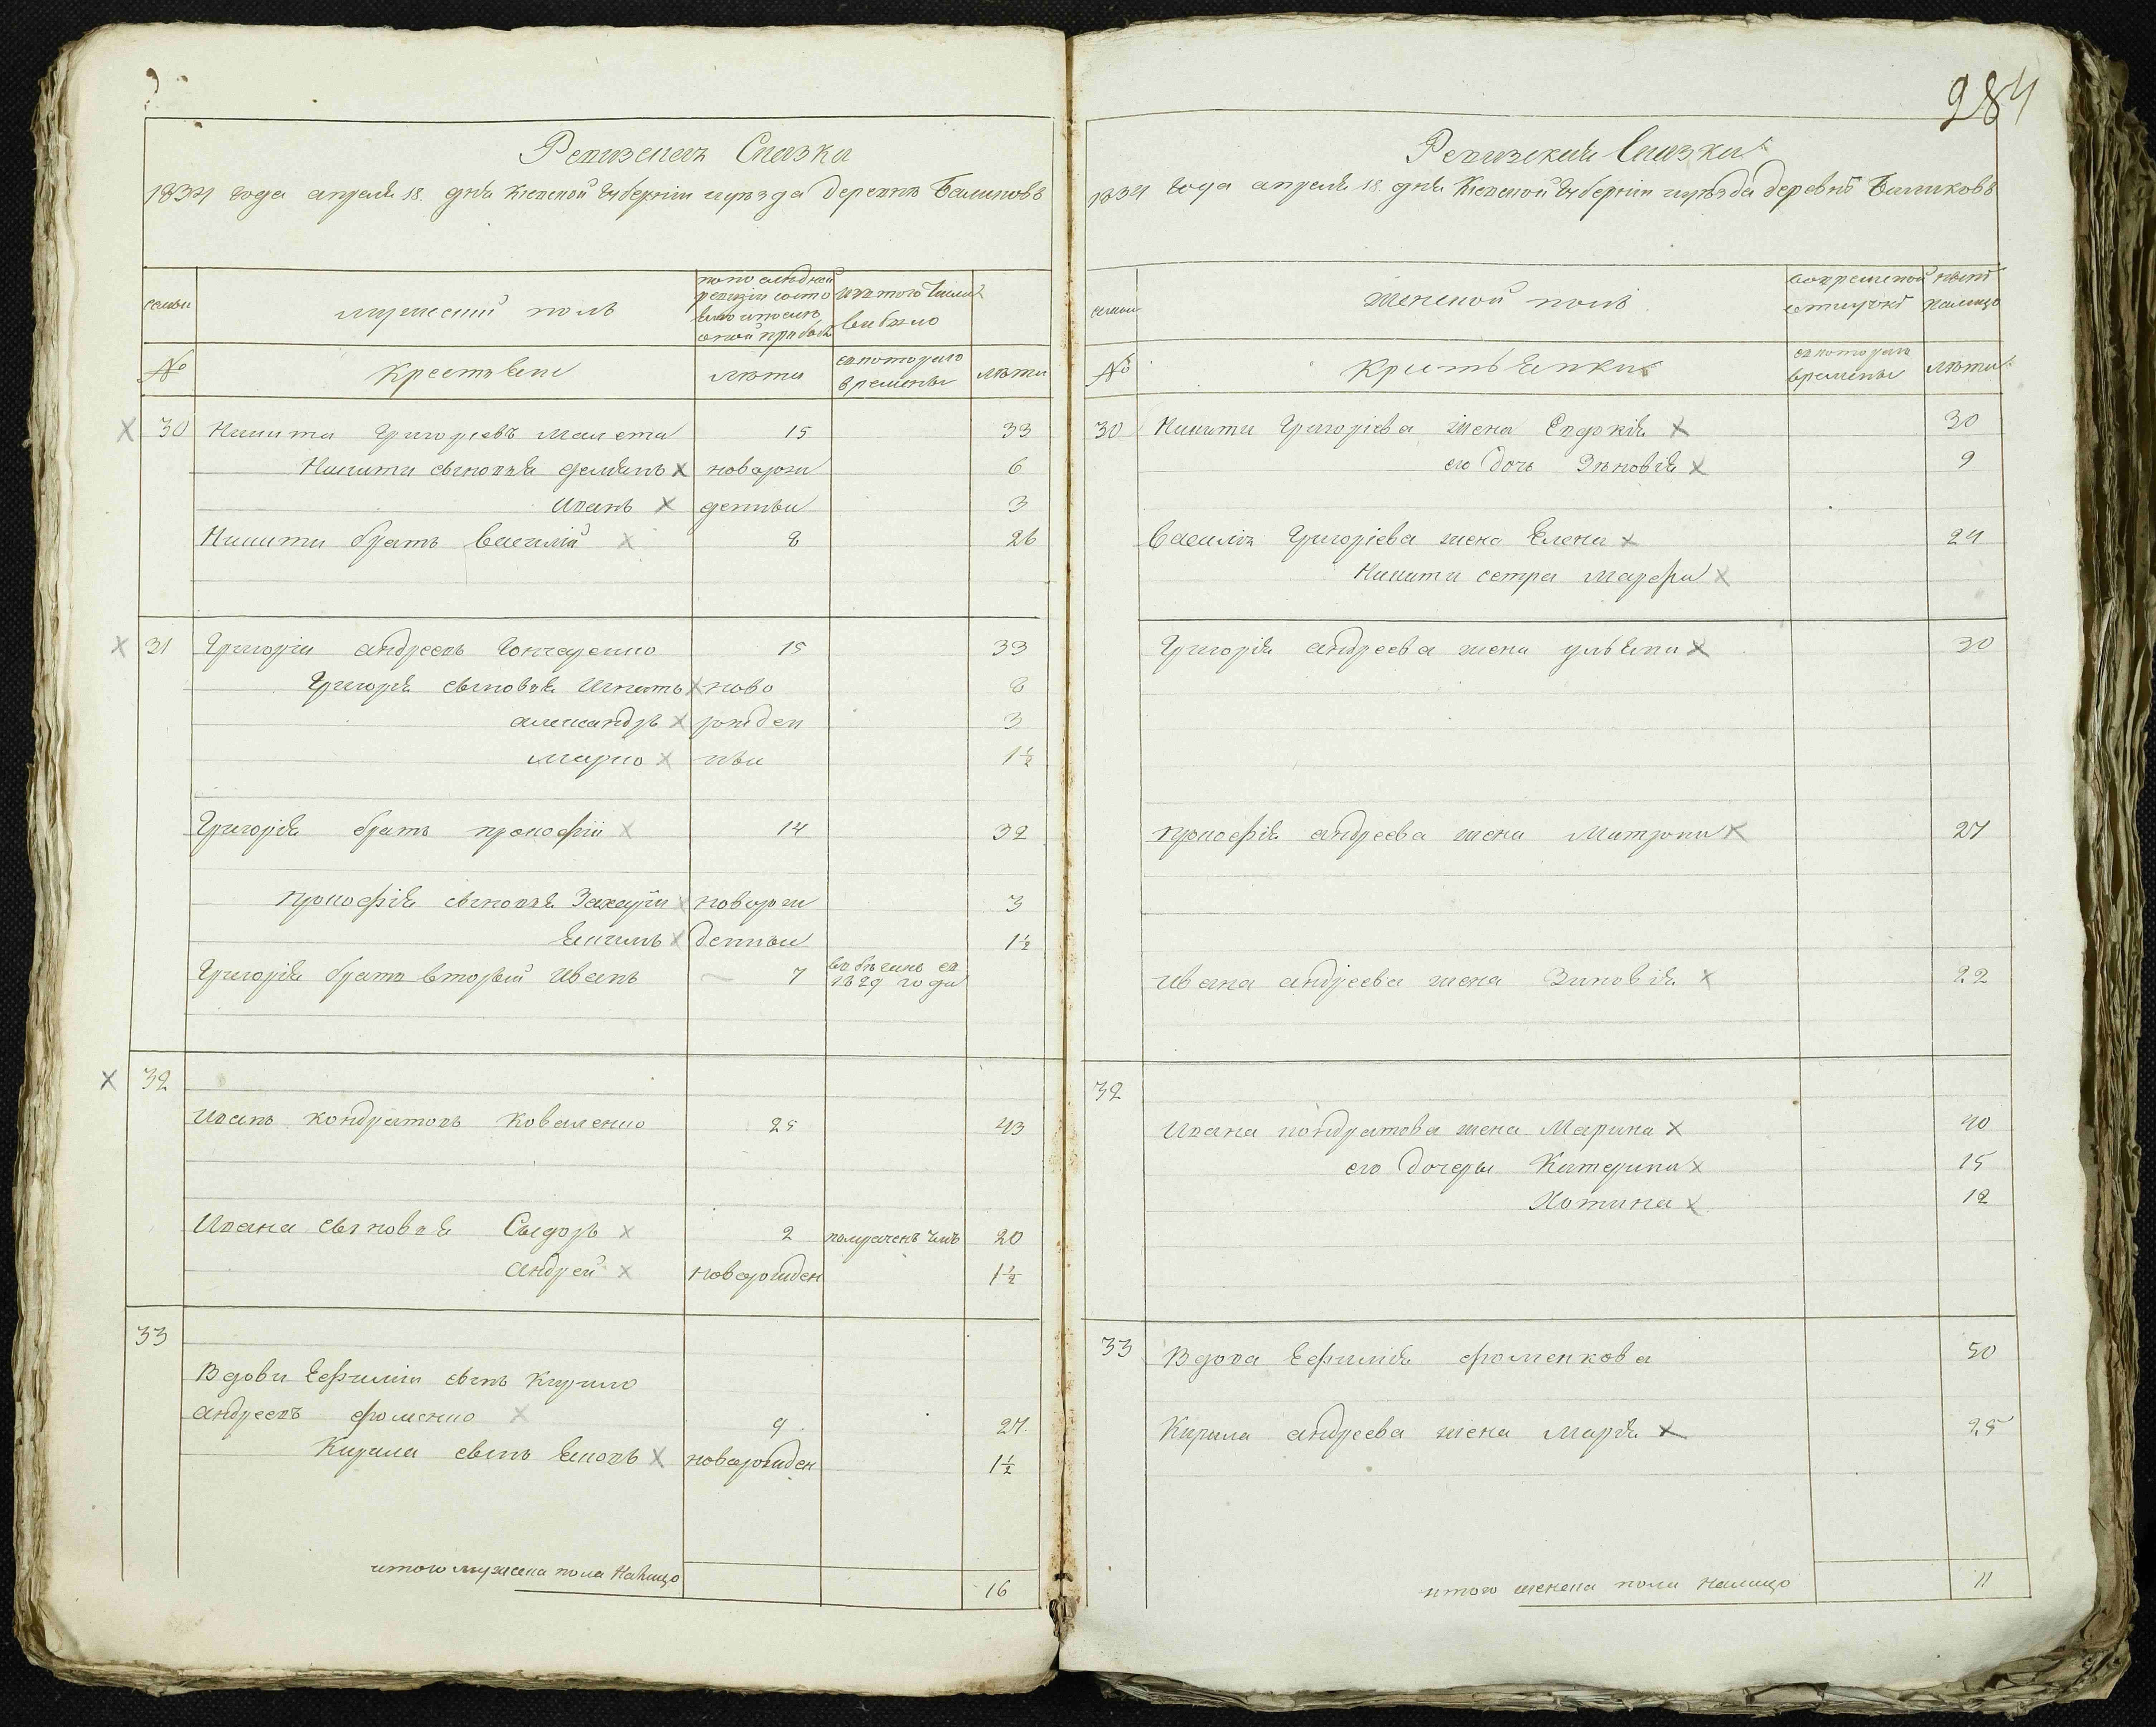 284
Ревизская Сказка
1834 года апреля 18. дня Киевской губернии уезда деревне
семьи
мужеский полъ
по последней ревизии состо
изтого числа выбыло
№
Крестьяне
лѣта
скоторого времены
лѣта
30 Никита Григориевъ 15 33
Никиты сыновья демянъ новорож 6
Иванъ денныи 3
Никиты братъ Василий 8 26
31 Григорий андреевъ Гончаренко 15 33
Григория сыновья Игнатъ ново 8
александръ рожден 3
марко ныи 1½
Григория братъ прокофии 14 32
прокофия сыновья Захарии новорож 3
денныи 1½
Григория братъ вторыи Иванъ 7 1829 года
32
Иванъ кондратовъ Коваленко 25 43
Ивана сыновья Сыдоръ 2 20
андрей новорожден 1½
33
Вдовы Ефимии сынъ Кирило
андреевъ фоменко 9 27
Кирила сынъ новорожден 1½
итого мужеска пола налицо 16
Ревизская Сказка
1834 года апреля 18. дня Киевской губернии уезда деревнѣ
семьи
женской полъ
вовременной отлучкѣ
налицо
№
Крестьянки
скоторого времены
лѣта
30 Никиты Григориева жена Евдокия 30
его дочь Зѣновия 9
Василия Григориева жена Елена 24
Никиты сетра Марфа
Григория андреева жена ульяна 30
прокофия андреева жена Матрона 27
Ивана андреева жена Зиновия 22
32
Ивана кондратова жена Марина 40
его дочеры Катерина 15
Хотина 12
33 Вдова Ефимия фоменкова 50
Кирила андреева жена Мария 25
итого женска пола налицо 11